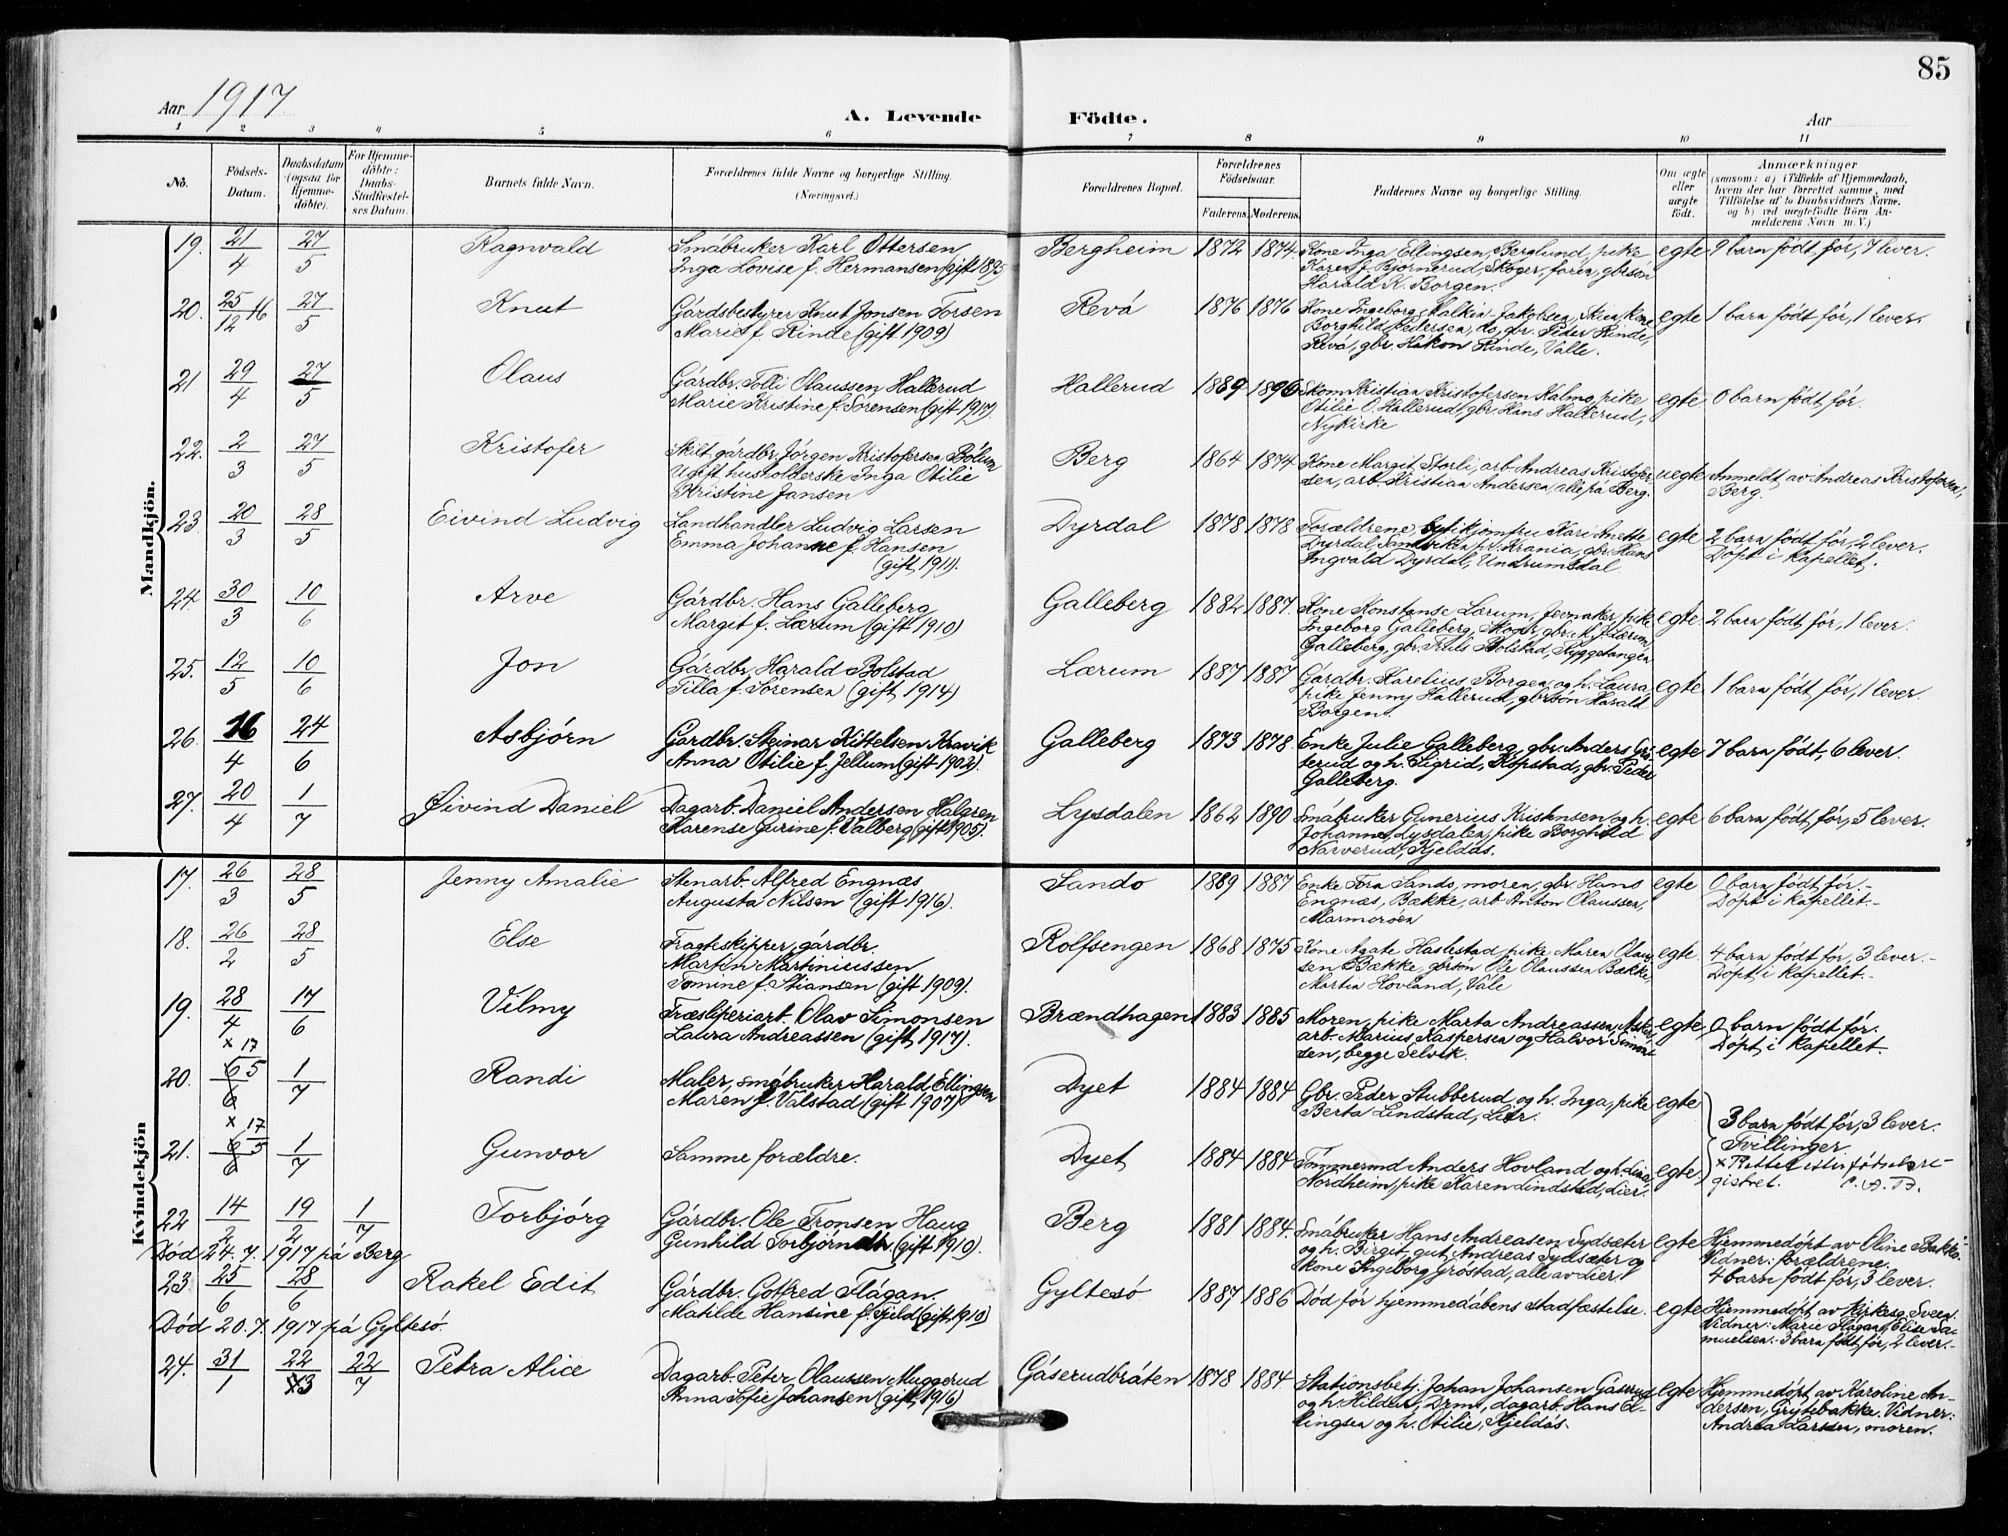 85
Aar 1917
A. Levende Födte.
Aar
1 2 3 4 5 6 7 8 9 10 11
No.
Födsels-Datum.
Daabsdatum (ogsaa for Hjemme-döbte).
For Hjemme-döbte: Daabs-Stadfæstel-ses Datum.
Barnets fulde Navn.
Forældrenes fulde Navne og borgerlige Stilling. (Næringsvei.)
Forældrenes Bopæl.
Forældrenes Födselsaar.
Faderens. Moderens.
Faddernes Navne og borgerlige Stilling.
Om ægte eller uægte födt.
Anmærkninger
(saasom: a) i Tilfælde af Hjemmedaab,
hvem der har forrettet samme, med
Tilföielse af to Daabsvidners Navne.
og b) ved uægtefödte Börn An-
melderens Navn m. V.)
Mandkjön.
19. 21/4 27/5 Ragnvald Småbruker Karl Ottersen Bergheim 1872 1874 Kone Inga Ellingsen, Berglund, pike egte 9 barn født før, 7 lever.
Inga Lovise f. Hermansen (gift 1895 Karen f. Bjørnerud, Skoger, faren, gbrsøn
Harald K. Borgen.
20. 25/12 16 27/5 Knut Gårdsbestyrer Knut Jonsen Torsen Revå 1876 1876 Kone Ingeborg Malkin-Jakobsen, Skien, kone egte 1 barn født før, 1 lever.
Marie f. Rinde (gift 1909) Borghild Pedersen, do, gbr. Peder Rinde,
Revå, gbr. Håkon Rinde, Valle.
21 29/4 27/5 Olaus Gårdbr. Tolli Olaussen Hallerud Hallerud 1889 1896 Skom. Kristian Kristofersen Kalmo, pike egte 0 barn født før.
Marie Kristine f. Sørensen (gift 1917). Otilie O. Hallerud, gbr. Hans Hallerud,
Nykirke
22. 2/3 27/5 Kristofer Skilt gårdbr. Jørgen Kristofersen Bølum Berg 1864 1874 Kone Margit Storli, arb. Andreas Kristofer- uegte Anmeldt av Andreas Kristofersen,
Ugift husholderske Inga Otilie sen, arb. Kristian Andersen, alle på Berg. Berg.
Kristine Jansen
23. 20/3 28/5 Eivind Ludvig Landhandler Ludvig Larsen Dyrdal 1878 1878 Forældrene, butikjomfru Kari Anette egte 2 barn født før, 2 lever.
Emma Johanne f. Hansen Dyrdal, Sandviken pr. Krania, gbr. Hans Døpt i kapellet.
(gift 1911). Ingvald Dyrdal, Undrumsdal.
24 30/3 10/6 Arve Gårdbr. Hans Galleberg Galleberg 1882 1887. Kone Konstanse Lærum, Jevnaker, pike egte. 2 barn født før, 1 lever.
Margit f. Lærum (gift 1910) Ingeborg Galleberg, Skoger, gbr. M. J. Lærum,
Galleberg, gbr. Nils Bolstad, Ryggetangen
25. 12/5 10/6 Jon Gårdbr. Harald Bolstad Lærum 1887 1887 Gårdbr. Karelius Borgen og h. Laura, egte 1 barn født før, 1 lever.
Tilla f. Sørensen (gift 1914) pike Jenny Hallerud, gbrsøn Harald
Borgen.
26. 16/4 24/6 Asbjørn Gårdbr. Steinar Kittelsen Kravik Galleberg 1873 1878 Enke Julie Galleberg, gbr. Anders egte 7 barn født, 6 lever.
Anna Otilie f. Jellum (gift 1902). terud og h. Sigrid, Kopstad, gbr. Peder
Galleberg.
27. 20/4 1/7 Øivind Daniel Dagarb. Daniel Andersen Halgren Lysdalen 1862 1890 Småbruker Gunerius Kristensen og h. egte 6 barn født før, 5 lever.
Karense Gurine f. Valberg (gift 1905). Johanne, Lysdalen, pike Borghild
Narverud, Kjeldås.
Kvindekjön
17. 26/3 28/5 Jenny Amalie Stenarb. Alfred Engnæs Sando 1889 1887 Enke Tora Sando, moren, gbr. Hans egte 0 barn født før.-
Augusta Nilsen (gift 1916). Engnæs, Bække, arb. Anton Olaussen, Døpt i kapellet.-
Marmorøen
18. 26/2 28/5 Else Fragteskipper, gårdbr. Rolfsengen 1868 1875 Kone Agate Haslestad, pike Maren Olaus- egte. 4 barn født før, 3 lever.-
Martin Martiniussen sen Bække, gbrsøn Ole Olaussen Bække, Døpt i kapellet.-
Tomine f. Stiansen (gift 1909). Martin Hovland, Våle
19. 28/4 17/6 Vilmy Træsliperiarb. Olav Simonsen Brændhagen 1883 1885 Moren, pike Marta Andreassen, Asker, egte, 0 barn født før.
Laura Andreassen (gift 1917). arb. Marius Kaspersen og Halvor Simon- Døpt i kapellet.
sen, begge Selvik.
20. x 17/5 6/6 1/7 Randi Maler, småbruker Harald Ellingsen Dyet 1884 1884 Gbr. Peder Stubberud og h. Inga, pike egte
Maren f. Valstad (gift 1907) Berta Lindstad, Lier. 3 barn født før, 3 lever.
Tvillinger.
21. x 17/5 6/6 1/7 Gunvor Samme forældre. Dyet 1884 1884 Tømmermd Anders Hovland og h. Lina egte x Rettet efter fødselsre-
Nordheim, pike Karen Lindstad, Lier. gistret.
22 14/2 19/2 1/7 Torbjørg Gårdbr. Ole Tronsen Haug Berg 1881 1884. Småbruker Hans Andreasen Sydsæter egte Hjemmedøpt av Oline Bakke.
Gunhild Torbjørndtr. (gift 1910). og h. Birgit, gut Andreas Sydsæter og Vidner: forældrene.
Død 24.7. 1917 på Berg kone Ingeborg Grøstad, alle av Lier. 4 barn født før, 3 lever.
23. 25/6 28/6 Rakel Edit Gårdbr. Gotfred Flågan. Gyltesø 1887 1886 Død før hjemmedåbens stadfæstelse. egte Hjemmedøpt av kirkesg. Sveen.
Matilde Hansine f. Gjild (gift 1910) Vidner: Marie Flågan, Elise Sa-
Død 20.7. 1917 på Gyltesø. muelsen.- 3 barn født før, 2 lever.-
24. 31/1 22/3 22/7 Petra Alice Dagarb. Peter Olaussen Muggerud Gåserudbråten 1878 1884. Stationsbetj. Johan Johansen Gåserud egte Hjemmedøpt av Karoline An-
Anna Sofie Johansen (gift 1916) og h. Hilda, Drm., dagarb. Hans El- dersen, Grytebakke. Vidner:
lingsen og h. Otilie, Kjeldås. Andrea Larssen, moren.